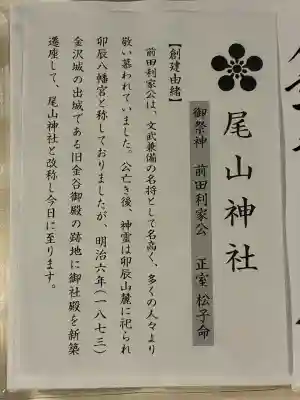 尾山神社
御祭神 前田利家公 正室 松子命
【創建由緒】
前田利家公は、文武兼備の名将として名高く、多くの人々より
敬い慕われていました。公亡き後、神霊は卯辰山麓に祀られ
卯辰八幡宮と称しておりましたが、明治六年(一八七三)
金沢城の出城である旧金谷御殿の跡地に御社殿を新築
遷座して、尾山神社と改称し今日に至ります。